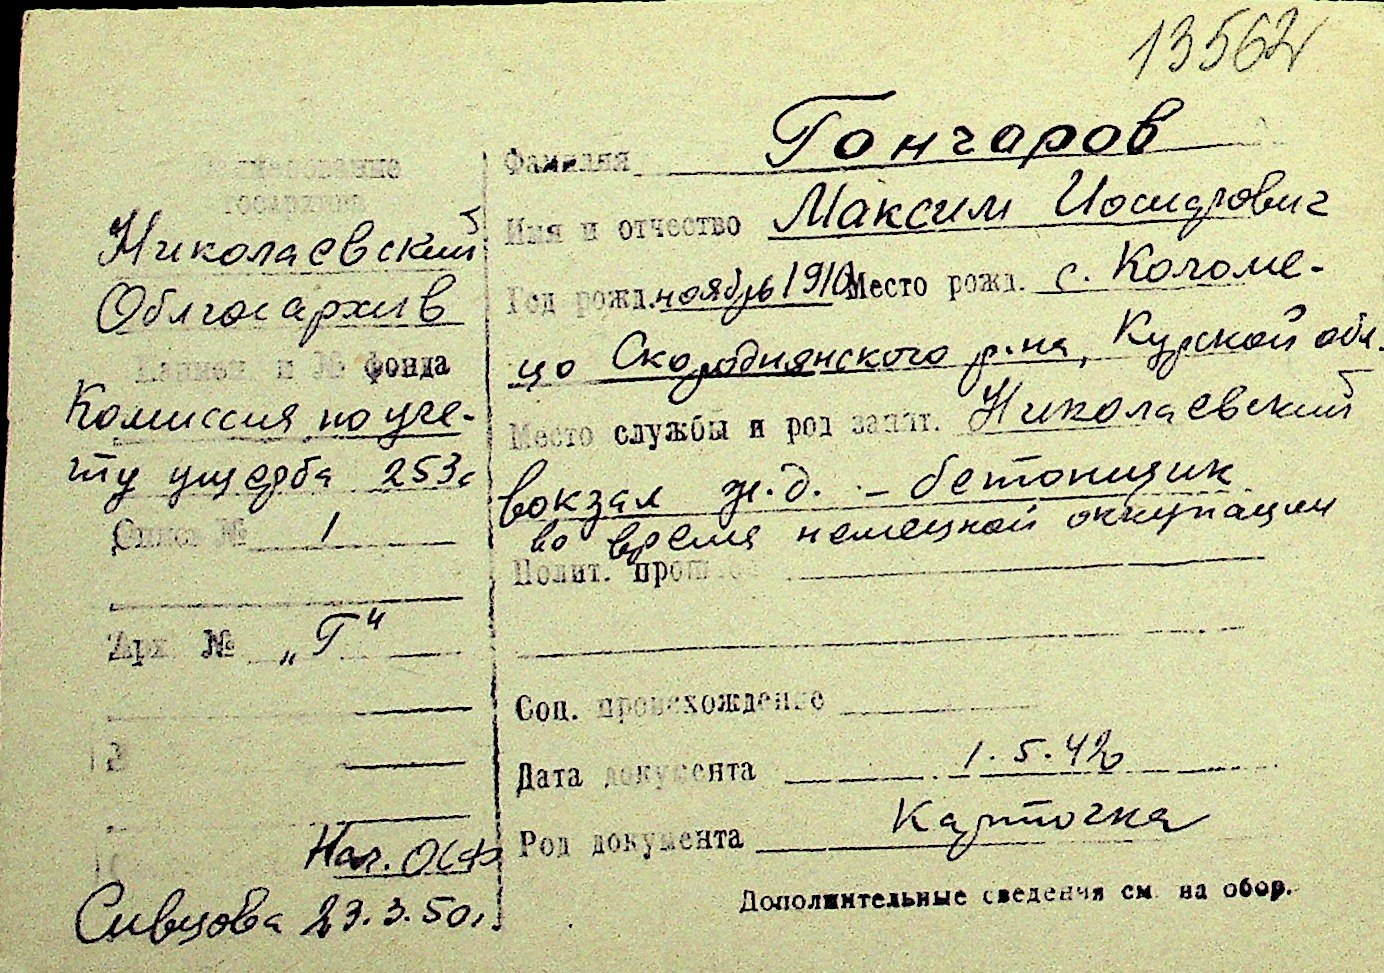 13562
Фамилия Гончаров
Имя и отчество Максим Иосифович
Год рожд. ноябрь 1910 Место рожд. с. Коломе-
цо Скороднянского р-на, Курской обл.
Место службы и род занят. Николаевский
вокзал ж.д. - бетонщик
во время немецкой оккупации
Полит. прошлое
Соц. происхождение
Дата документа 1.5.42
Род документа Карточка
Дополнительные сведения см. на обор.
Наименование
госархива
Николаевский
Облгосархив
Наимен. и № фонда
Комиссия по уче-
ту ущерба 253с
Опись № 1
Арх. № „Г"
Нач. ОСФ
Сивцова 23.3.50г.